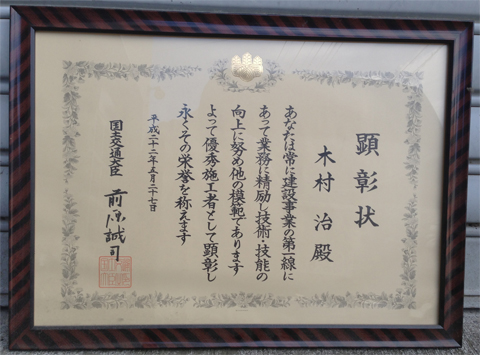 顕彰状
木村 治 殿
あなたは常に建設事業の第一線に
あって業務に精励し技術・技能の
向上に努め他の模範であります
よって優秀施工者として顕彰し
永くその栄誉を称えます
平成二十二年五月二十七日
国土交通大臣 前原誠司